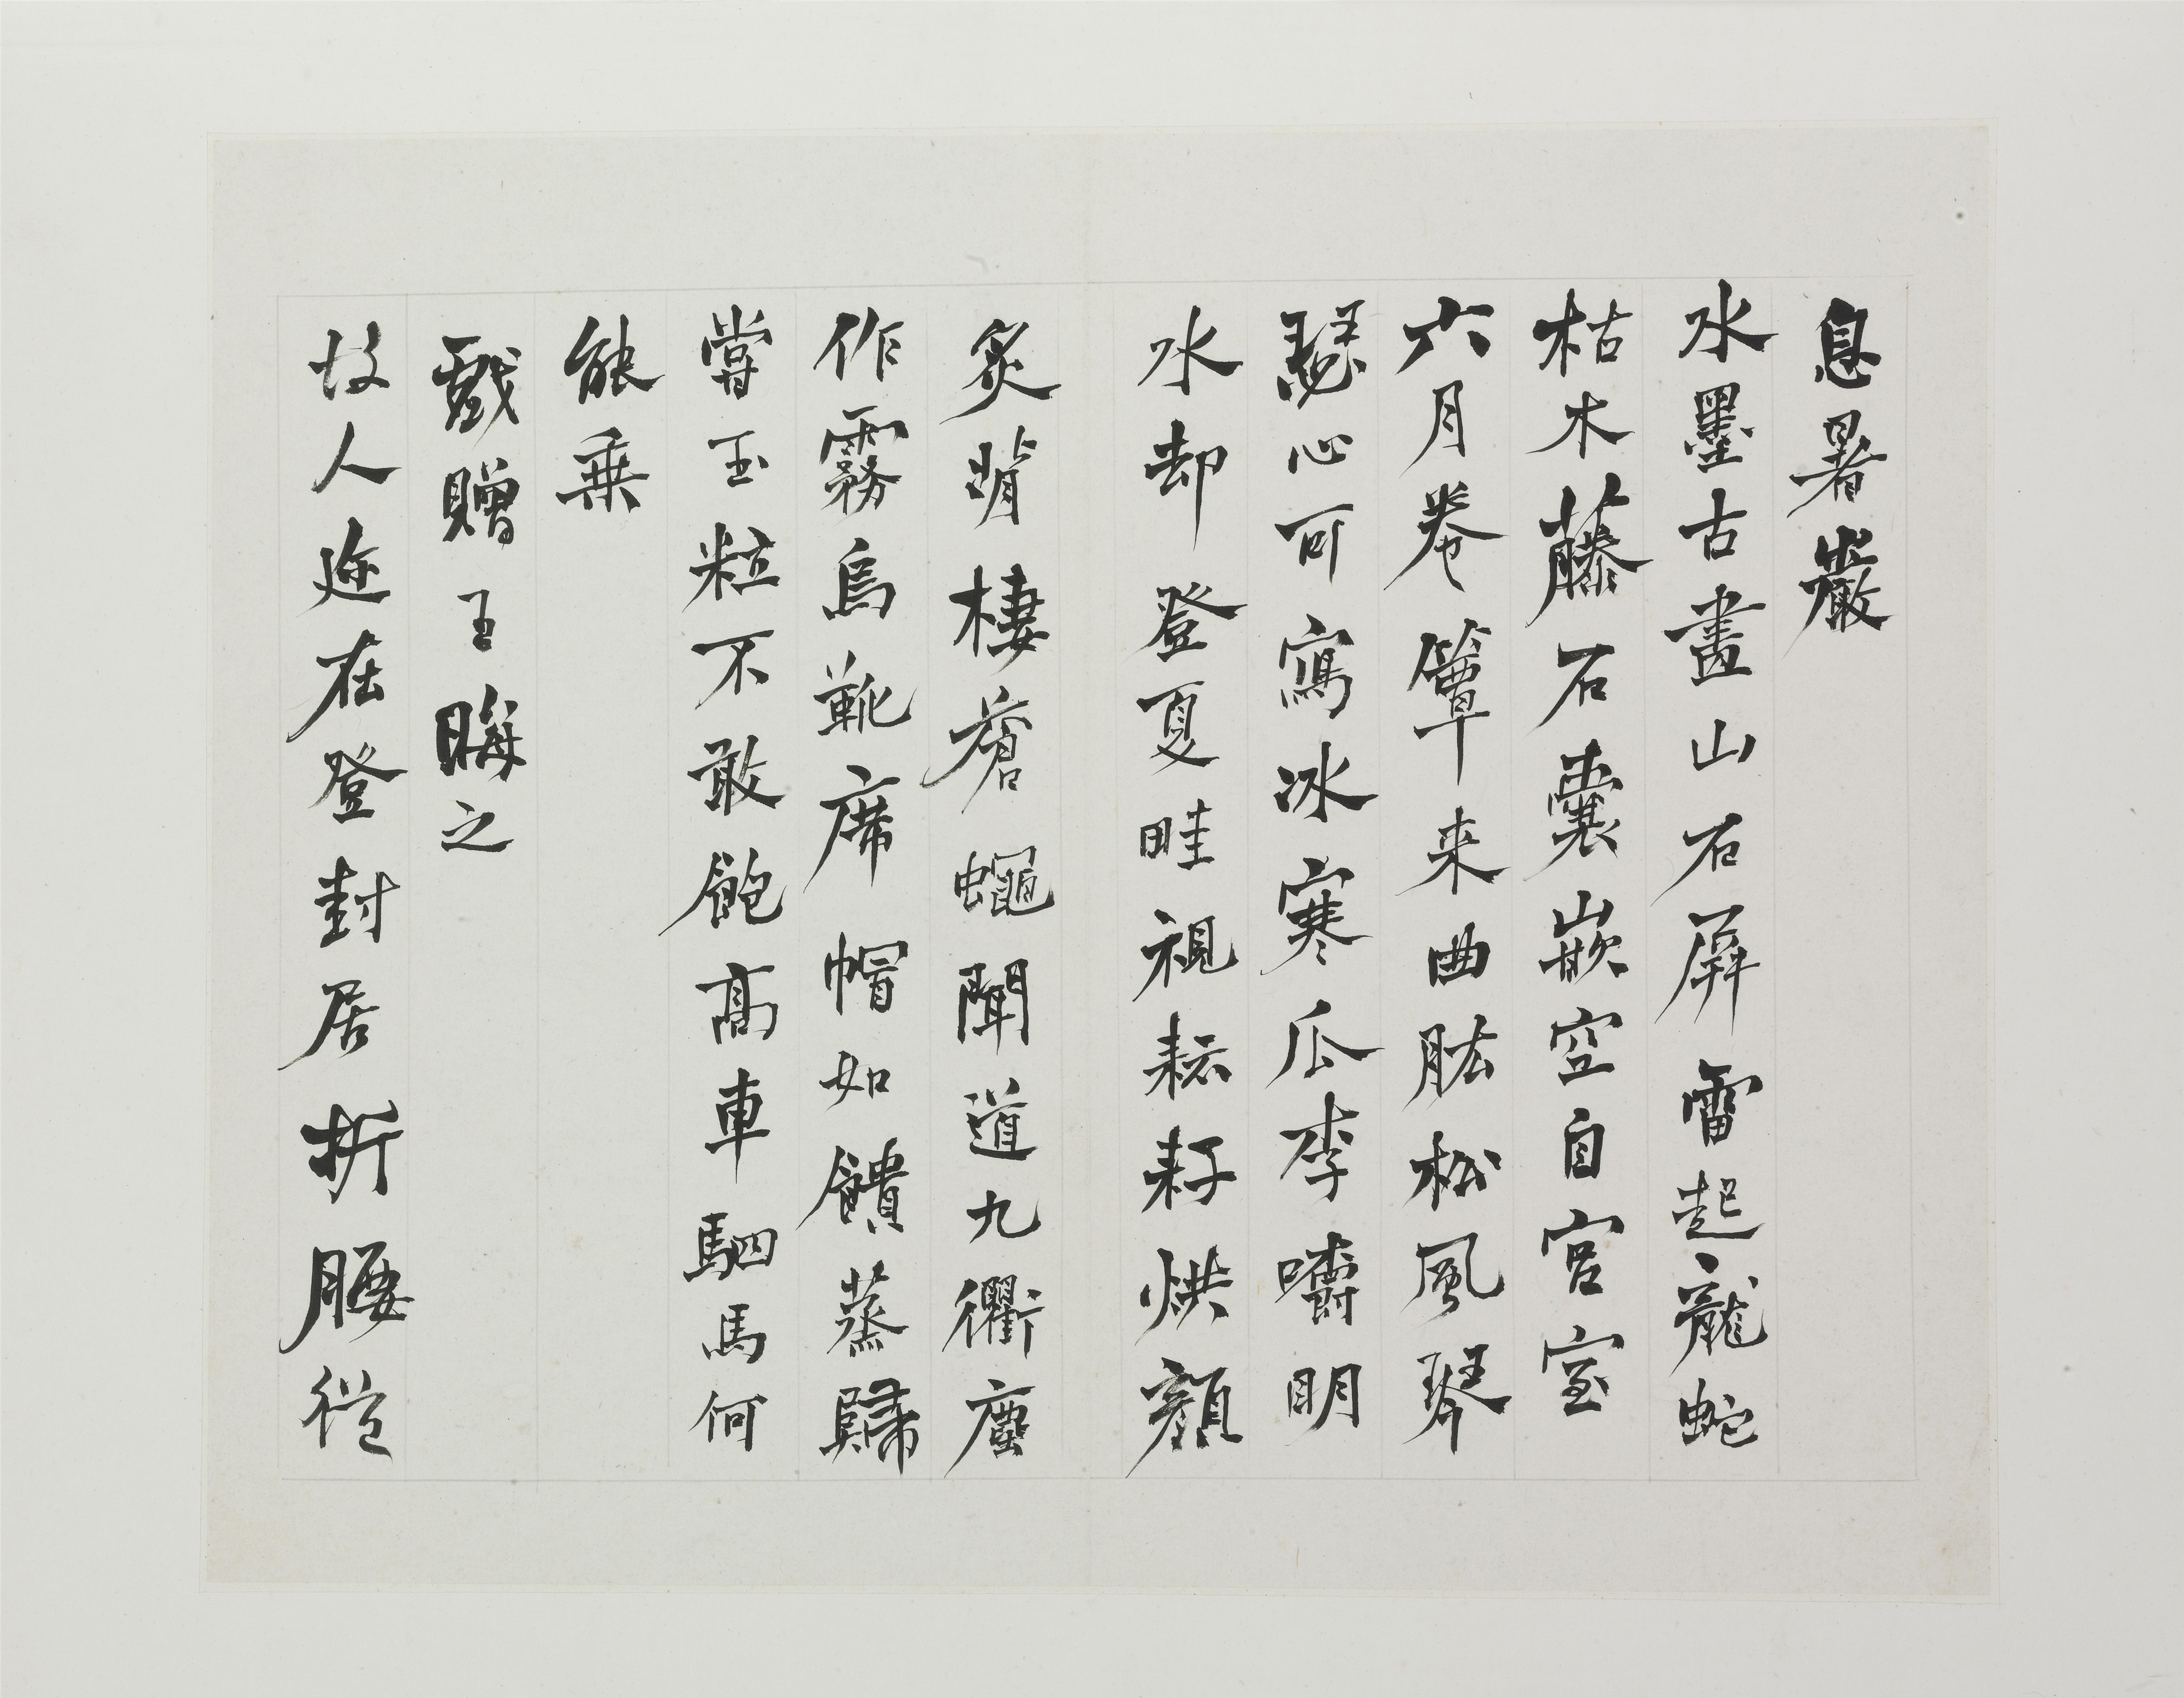 息暑巖
水墨古畫山石屏雷起龍蛇
枯木藤石囊嵌空自宮室
六月卷簟来曲肱松風琴
瑟心可寫冰寒瓜李嚼明
水却登夏畦視耘耔烘顏
炙背棲蒼蠅聞道九衢塵
作霧烏靴席帽如饋蒸歸
嘗玉粒不敢飽高車駟馬何
能乘
戲贈王晦之
故人迩在登封居折腰從